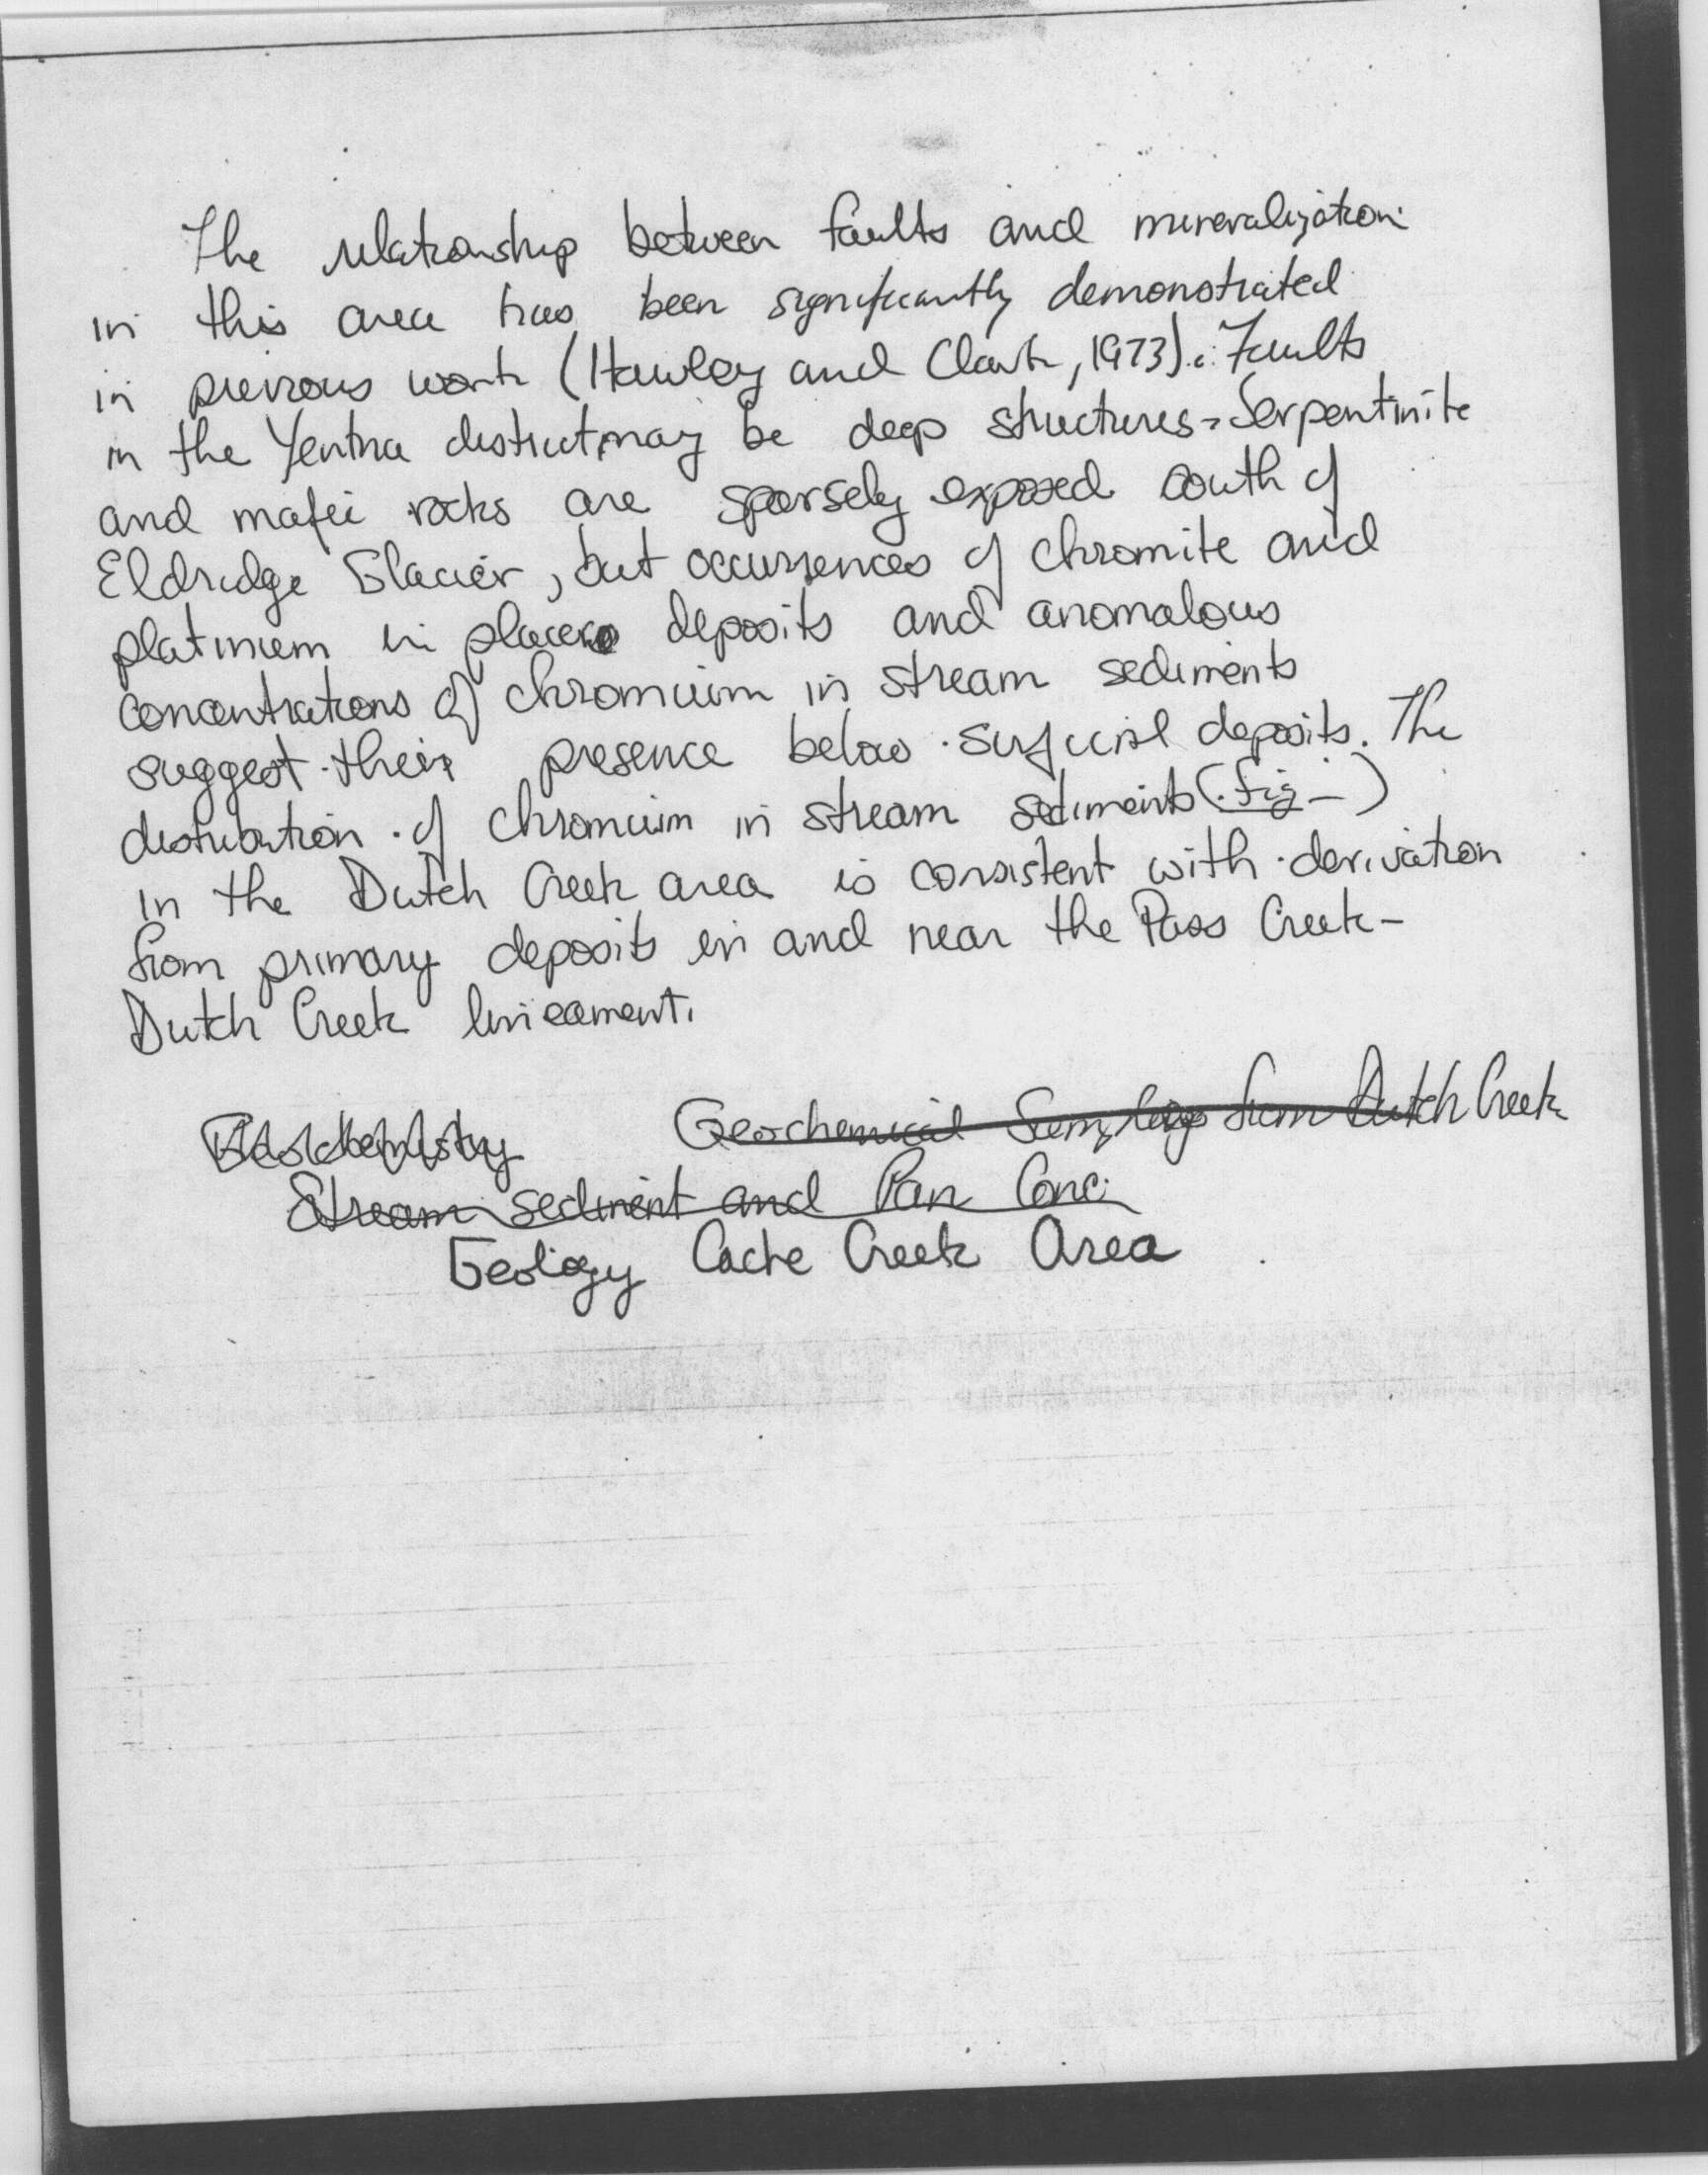 The relationship between faults and mineralization
in this area has been significantly demonstrated
in previous work (Hawley and Clark, 1973). Faults
in the Yentna district may be deep structures. Serpentinite
and mafic rocks are sparsely exposed south of
Eldridge Glacier, but occurrences of chromite and
platinum in placer deposits and anomalous
concentrations of chromium in stream sediments
suggest their presence below surficial deposits. The
distribution of chromium in stream sediments (fig. _)
in the Dutch Creek area is consistent with derivation
from primary deposits in and near the Pass Creek-
Dutch Creek lineament.
Geochemistry Geochemical Sampling from Dutch Creek
Stream sediment and Pan Conc.
Geology Cache Creek Area